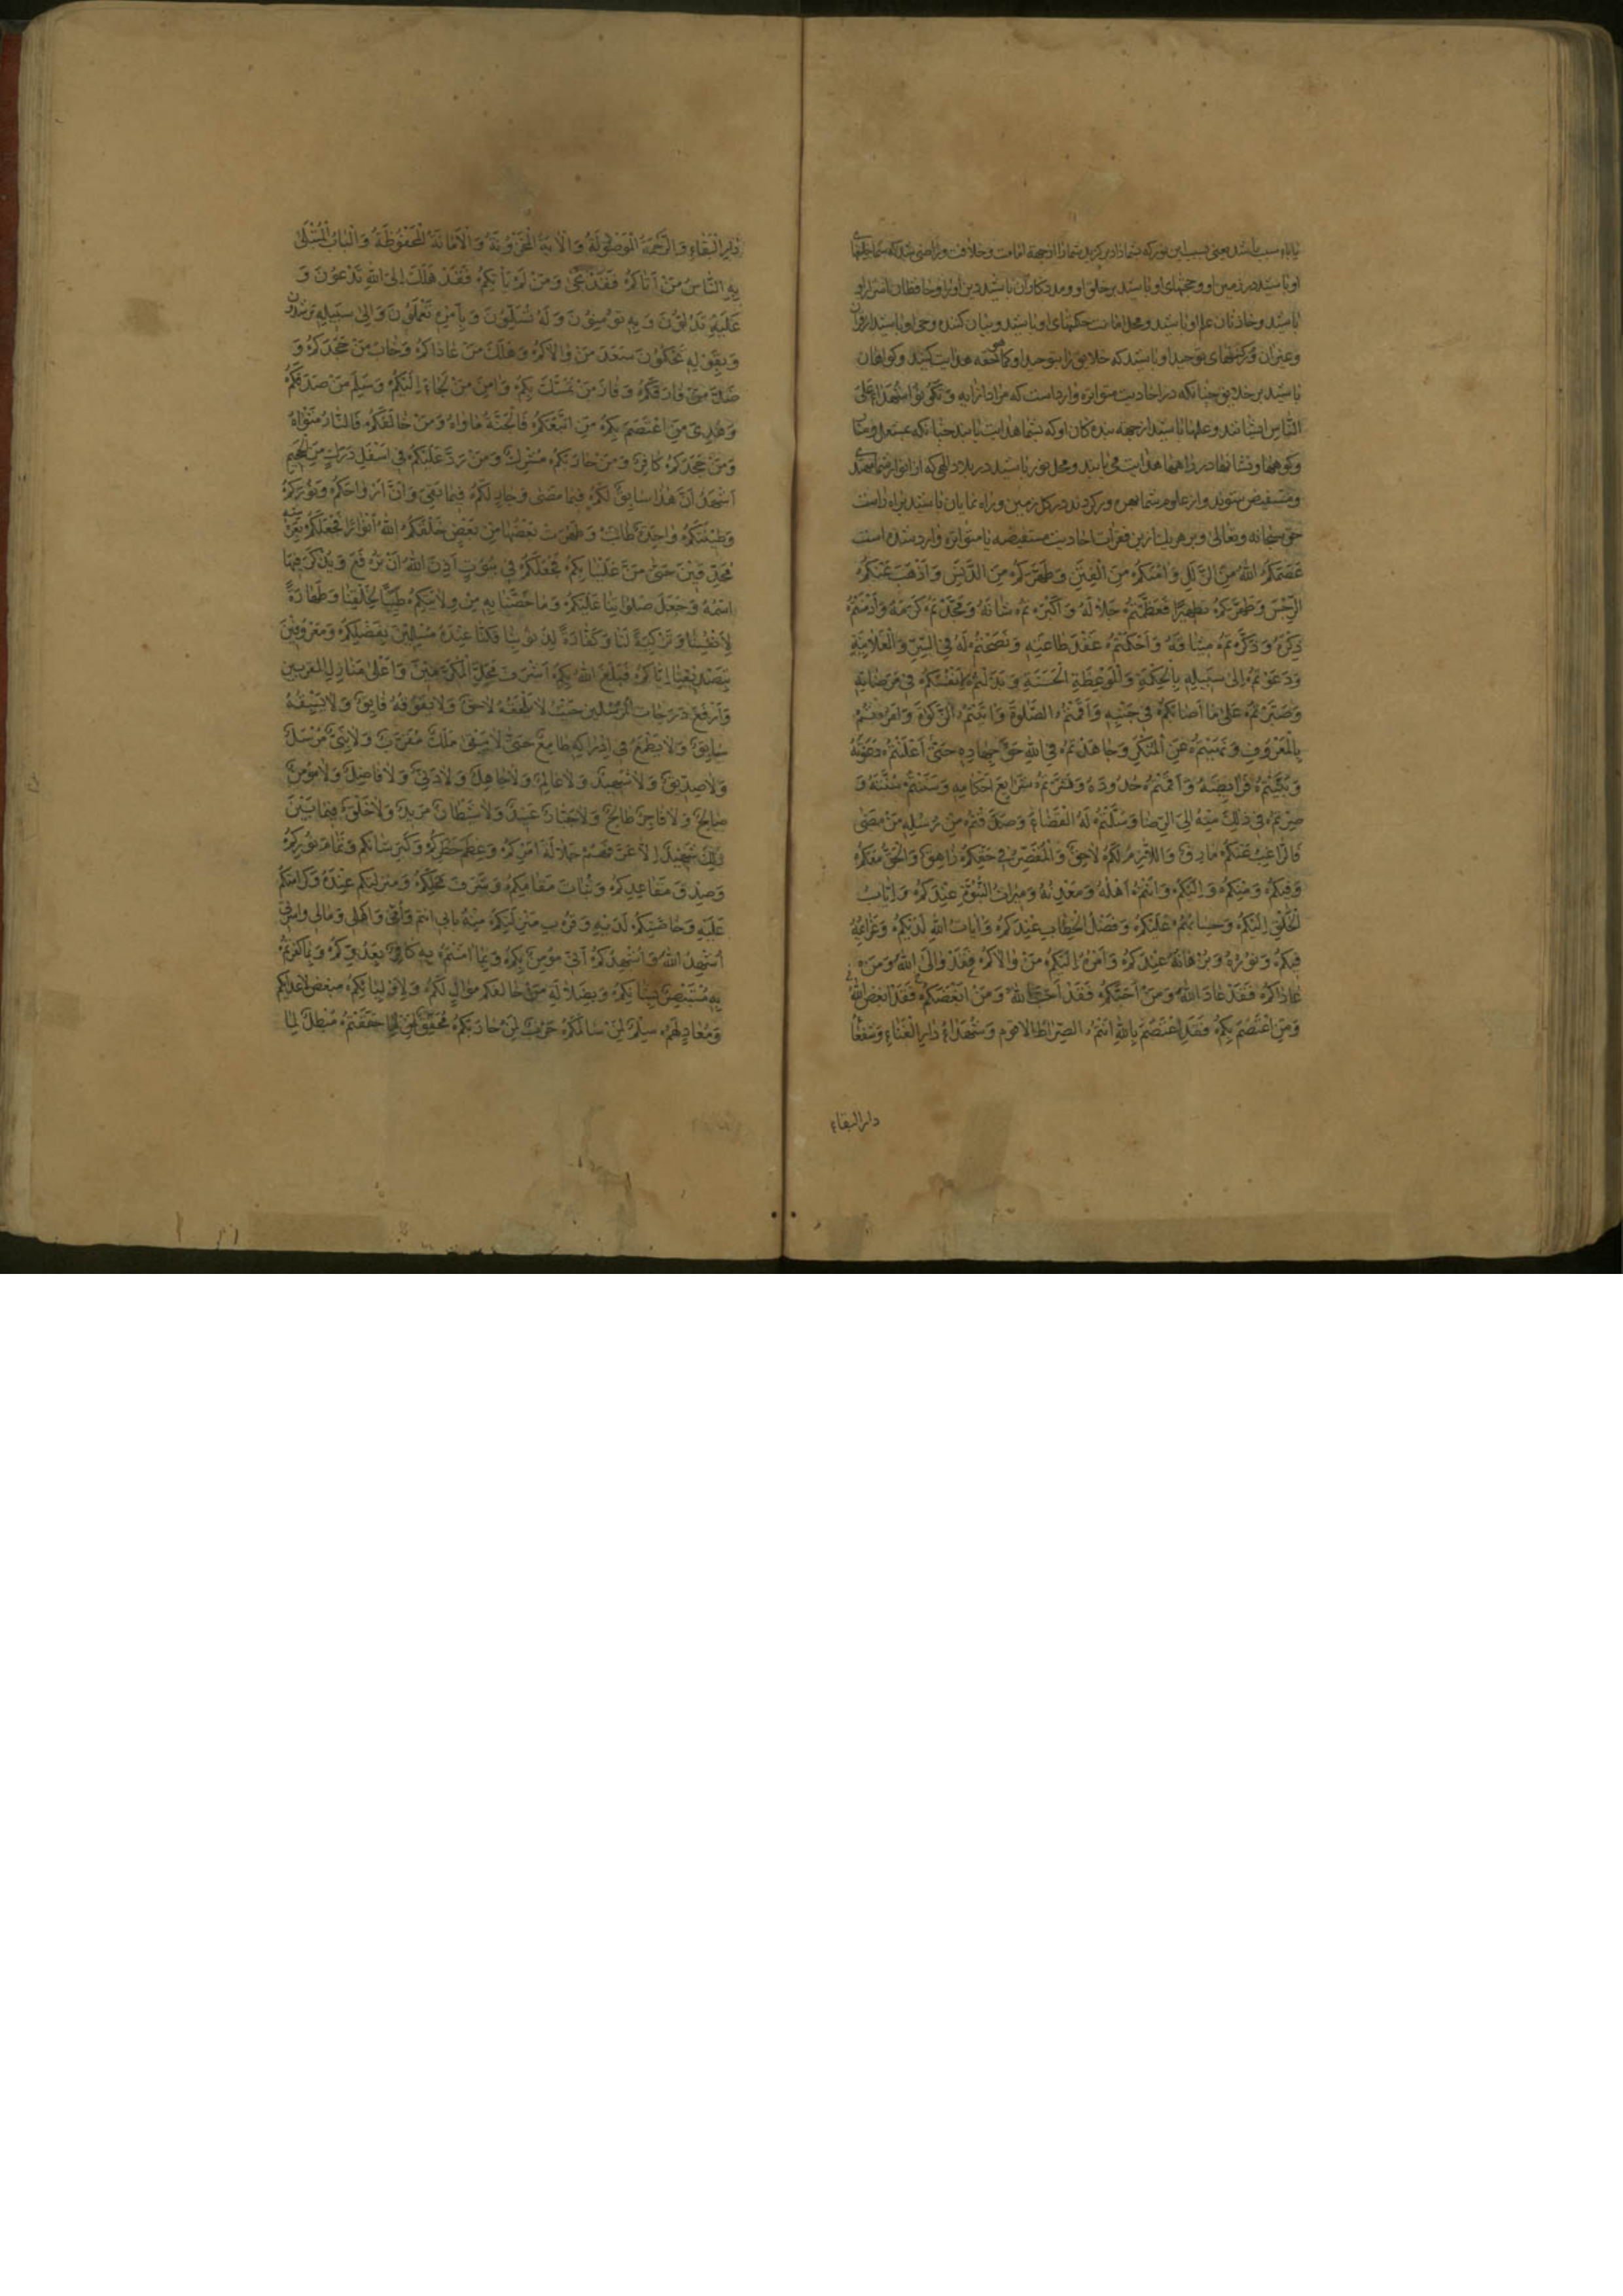 یا باء سبب باشد یعنی بسبب این نور که بشما داد برگزید شما را از جهة امامت و خلافت و راضی شد که شما خلیفهای
او باشید در زمین او و حجتهای او باشید بر خلق او و مددکاران باشید دین او را و حافظان اسرار او
باشید و خازنان علم او باشید و محل امانت حکمتهای او باشید و بیان کننده وحی او باشید
و رکنهای توحید او باشید که خلایق را بتوحید او کما حقه هدایت کنید و گواهان
باشید بر خلایق چنانکه در احادیث متواتره وارد است که مراد از آیه وَتَكُونُوا شُهَدَاءَ عَلَى
النَّاسِ ایشانند و علمها باشید از جهة بندگان او که بشما هدایت یابند چنانکه
و کوهها و نشانها در راهها هدایت می یابند و محل نور باشید در بلاد الهی که از انوار شما
و مستفیض شوند و از علوم شما بهره ور گردند در کل زمین و راه نمایان باشید براه راست
حق سبحانه و تعالی و بر هر یک ازین فقرات احادیث مستفیضه یا متواتره وارد شده است
عَصَمَكُمُ اللهُ مِنَ الزَّلَلِ وَآمَنَكُمْ مِنَ الْفِتَنِ وَطَهَّرَكُمْ مِنَ الدَّنَسِ وَأَذْهَبَ عَنْكُمُ
الرِّجْسَ وَطَهَّرَكُمْ تَطْهِيرًا فَعَظَّمْتُمْ جَلَالَهُ وَأَكْبَرْتُمْ شَأْنَهُ وَمَجَّدْتُمْ كَرَمَهُ وَأَدْمَنْتُمْ
ذِكْرَهُ وَذَكَّرْتُمْ مِيثَاقَهُ وَأَحْكَمْتُمْ عَقْدَ طَاعَتِهِ وَنَصَحْتُمْ لَهُ فِي السِّرِّ وَالْعَلَانِيَةِ
وَدَعَوْتُمْ إِلَى سَبِيلِهِ بِالْحِكْمَةِ وَالْمَوْعِظَةِ الْحَسَنَةِ وَبَذَلْتُمْ أَنْفُسَكُمْ فِي مَرْضَاتِهِ
وَصَبَرْتُمْ عَلَى مَا أَصَابَكُمْ فِي جَنْبِهِ وَأَقَمْتُمُ الصَّلٰوةَ وَآتَيْتُمُ الزَّكٰوةَ وَأَمَرْتُمْ
بِالْمَعْرُوفِ وَنَهَيْتُمْ عَنِ الْمُنْكَرِ وَجَاهَدْتُمْ فِي اللهِ حَقَّ جِهَادِهِ حَتَّى أَعْلَنْتُمْ دَعْوَتَهُ
وَبَيَّنْتُمْ فَرَائِضَهُ وَأَقَمْتُمْ حُدُودَهُ وَنَشَرْتُمْ شَرَائِعَ أَحْكَامِهِ وَسَنَنْتُمْ سُنَّتَهُ وَ
صِرْتُمْ فِي ذَلِكَ مِنْهُ إِلَى الرِّضَا وَسَلَّمْتُمْ لَهُ الْقَضَاءَ وَصَدَّقْتُمْ مِنْ رُسُلِهِ مَنْ مَضَى
فَالرَّاغِبُ عَنْكُمْ مَارِقٌ وَاللَّازِمُ لَكُمْ لَاحِقٌ وَالْمُقَصِّرُ فِي حَقِّكُمْ زَاهِقٌ وَالْحَقُّ مَعَكُمْ
وَفِيكُمْ وَمِنْكُمْ وَإِلَيْكُمْ وَأَنْتُمْ أَهْلُهُ وَمَعْدِنُهُ وَمِيرَاثُ النُّبُوَّةِ عِنْدَكُمْ وَإِيَابُ
الْخَلْقِ إِلَيْكُمْ وَحِسَابُهُمْ عَلَيْكُمْ وَفَصْلُ الْخِطَابِ عِنْدَكُمْ وَآيَاتُ اللهِ لَدَيْكُمْ وَعَزَائِمُهُ
فِيكُمْ وَنُورُهُ وَبُرْهَانُهُ عِنْدَكُمْ وَأَمْرُهُ إِلَيْكُمْ مَنْ وَالَاكُمْ فَقَدْ وَالَى اللهَ وَمَنْ
عَادَاكُمْ فَقَدْ عَادَ اللهَ وَمَنْ أَحَبَّكُمْ فَقَدْ أَحَبَّ اللهَ وَمَنْ أَبْغَضَكُمْ فَقَدْ أَبْغَضَ اللهَ
وَمَنِ اعْتَصَمَ بِكُمْ فَقَدِ اعْتَصَمَ بِاللهِ أَنْتُمُ الصِّرَاطُ الْأَقْوَمُ وَشُهَدَاءُ دَارِ الْفَنَاءِ وَشُفَعَاءُ
دار البقاء
دَارِ الْبَقَاءِ وَالرَّحْمَةُ الْمَوْصُولَةُ وَالْآيَةُ الْمَخْزُونَةُ وَالْأَمَانَةُ الْمَحْفُوظَةُ وَالْبَابُ الْمُبْتَلَى
بِهِ النَّاسُ مَنْ أَتَاكُمْ فَقَدْ نَجَى وَمَنْ لَمْ يَأْتِكُمْ فَقَدْ هَلَكَ إِلَى اللهِ تَدْعُونَ وَ
عَلَيْهِ تَدُلُّونَ وَبِهِ تُؤْمِنُونَ وَلَهُ تُسَلِّمُونَ وَبِأَمْرِهِ تَعْمَلُونَ وَإِلَى سَبِيلِهِ تُرْشِدُونَ
وَبِقَوْلِهِ تَحْكُمُونَ سَعَدَ مَنْ وَالَاكُمْ وَهَلَكَ مَنْ عَادَاكُمْ وَخَابَ مَنْ جَحَدَكُمْ وَ
ضَلَّ مَنْ فَارَقَكُمْ وَفَازَ مَنْ تَمَسَّكَ بِكُمْ وَأَمِنَ مَنْ لَجَأَ إِلَيْكُمْ وَسَلِمَ مَنْ صَدَّقَكُمْ
وَهُدِيَ مَنِ اعْتَصَمَ بِكُمْ مَنِ اتَّبَعَكُمْ فَالْجَنَّةُ مَأْوَاهُ وَمَنْ خَالَفَكُمْ فَالنَّارُ مَثْوَاهُ
وَمَنْ جَحَدَكُمْ كَافِرٌ وَمَنْ حَارَبَكُمْ مُشْرِكٌ وَمَنْ رَدَّ عَلَيْكُمْ فِي أَسْفَلِ دَرَكٍ مِنَ الْجَحِيمِ
أَشْهَدُ أَنَّ هَذَا سَابِقٌ لَكُمْ فِيمَا مَضَى وَجَارٍ لَكُمْ فِيمَا بَقِيَ وَأَنَّ أَرْوَاحَكُمْ وَنُورَكُمْ
وَطِينَتَكُمْ وَاحِدَةٌ طَابَتْ وَطَهُرَتْ بَعْضُهَا مِنْ بَعْضٍ خَلَقَكُمُ اللهُ أَنْوَارًا فَجَعَلَكُمْ بِعَرْشِهِ
مُحْدِقِينَ حَتَّى مَنَّ عَلَيْنَا بِكُمْ فَجَعَلَكُمْ فِي بُيُوتٍ أَذِنَ اللهُ أَنْ تُرْفَعَ وَيُذْكَرَ فِيهَا
اسْمُهُ وَجَعَلَ صَلَوَاتِنَا عَلَيْكُمْ وَمَا خَصَّنَا بِهِ مِنْ وِلَايَتِكُمْ طِيبًا لِخَلْقِنَا وَطَهَارَةً
لِأَنْفُسِنَا وَتَزْكِيَةً لَنَا وَكَفَّارَةً لِذُنُوبِنَا فَكُنَّا عِنْدَهُ مُسَلِّمِينَ بِفَضْلِكُمْ وَمَعْرُوفِينَ
بِتَصْدِيقِنَا إِيَّاكُمْ فَبَلَغَ اللهُ بِكُمْ أَشْرَفَ مَحَلِّ الْمُكَرَّمِينَ وَأَعْلَى مَنَازِلِ الْمُقَرَّبِينَ
وَأَرْفَعَ دَرَجَاتِ الْمُرْسَلِينَ حَيْثُ لَا يَلْحَقُهُ لَاحِقٌ وَلَا يَفُوقُهُ فَائِقٌ وَلَا يَسْبِقُهُ
سَابِقٌ وَلَا يَطْمَعُ فِي إِدْرَاكِهِ طَامِعٌ حَتَّى لَا يَبْقَى مَلَكٌ مُقَرَّبٌ وَلَا نَبِيٌّ مُرْسَلٌ
وَلَا صِدِّيقٌ وَلَا شَهِيدٌ وَلَا عَالِمٌ وَلَا جَاهِلٌ وَلَا دَنِيٌّ وَلَا فَاضِلٌ وَلَا مُؤْمِنٌ
صَالِحٌ وَلَا فَاجِرٌ طَالِحٌ وَلَا جَبَّارٌ عَنِيدٌ وَلَا شَيْطَانٌ مَرِيدٌ وَلَا خَلْقٌ فِيمَا بَيْنَ
ذَلِكَ شَهِيدٌ إِلَّا عَرَّفَهُمْ جَلَالَةَ أَمْرِكُمْ وَعِظَمَ خَطَرِكُمْ وَكِبَرَ شَأْنِكُمْ وَتَمَامَ نُورِكُمْ
وَصِدْقَ مَقَاعِدِكُمْ وَثَبَاتَ مَقَامِكُمْ وَشَرَفَ مَحَلِّكُمْ وَمَنْزِلَتِكُمْ عِنْدَهُ وَكَرَامَتَكُمْ
عَلَيْهِ وَخَاصَّتَكُمْ لَدَيْهِ وَقُرْبَ مَنْزِلَتِكُمْ مِنْهُ بِأَبِي أَنْتُمْ وَأُمِّي وَأَهْلِي وَمَالِي وَأُسْرَتِي
أُشْهِدُ اللهَ وَأُشْهِدُكُمْ أَنِّي مُؤْمِنٌ بِكُمْ وَبِمَا آمَنْتُمْ بِهِ كَافِرٌ بِعَدُوِّكُمْ وَبِمَا كَفَرْتُمْ
بِهِ مُسْتَبْصِرٌ بِشَأْنِكُمْ وَبِضَلَالَةِ مَنْ خَالَفَكُمْ مُوَالٍ لَكُمْ وَلِأَوْلِيَائِكُمْ مُبْغِضٌ لِأَعْدَائِكُمْ
وَمُعَادٍ لَهُمْ سِلْمٌ لِمَنْ سَالَمَكُمْ حَرْبٌ لِمَنْ حَارَبَكُمْ مُحَقِّقٌ لِمَا حَقَّقْتُمْ مُبْطِلٌ لِمَا